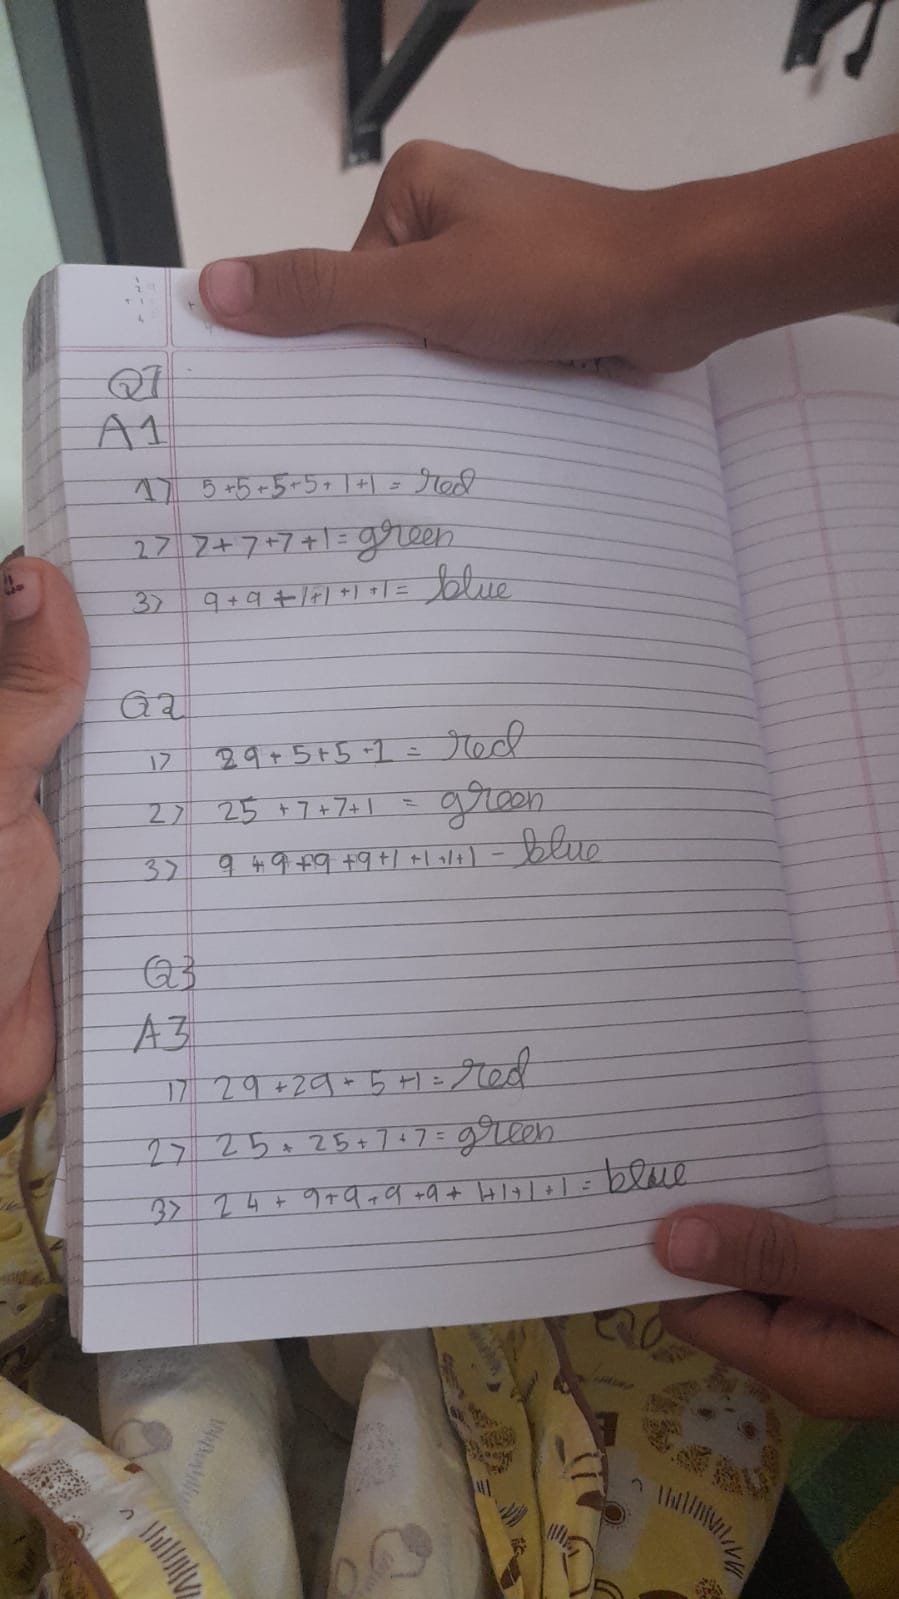 Q1
A1
1) 5+5+5+5+1+1 = red
2) 7+7+7+1 = green
3) 9+9+1+1+1+1 = blue
Q2
1) 29+5+5+1 = red
2) 25+7+7+1 = green
3) 9+9+9+9+1+1+1+1 - blue
Q3
A3
1) 29+29+5+1 = red
2) 25+25+7+7 = green
3) 24+9+9+9+9+1+1+1+1 = blue